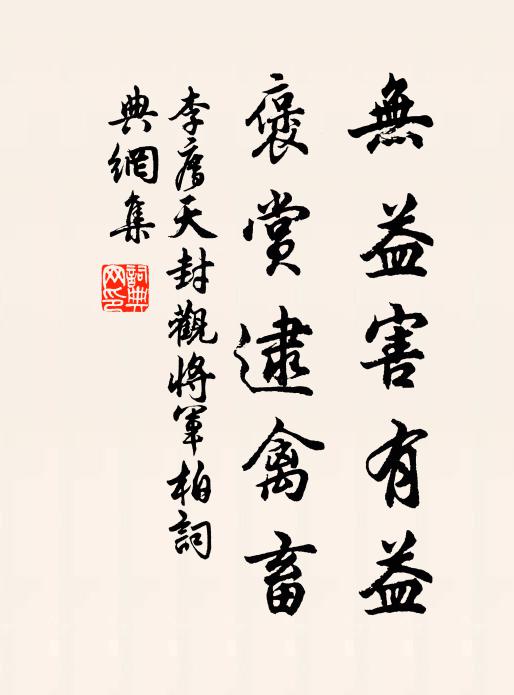 無益害有益
褒賞逮禽畜
李廌天封觀將軍柏詞
典網集
詞典
网印